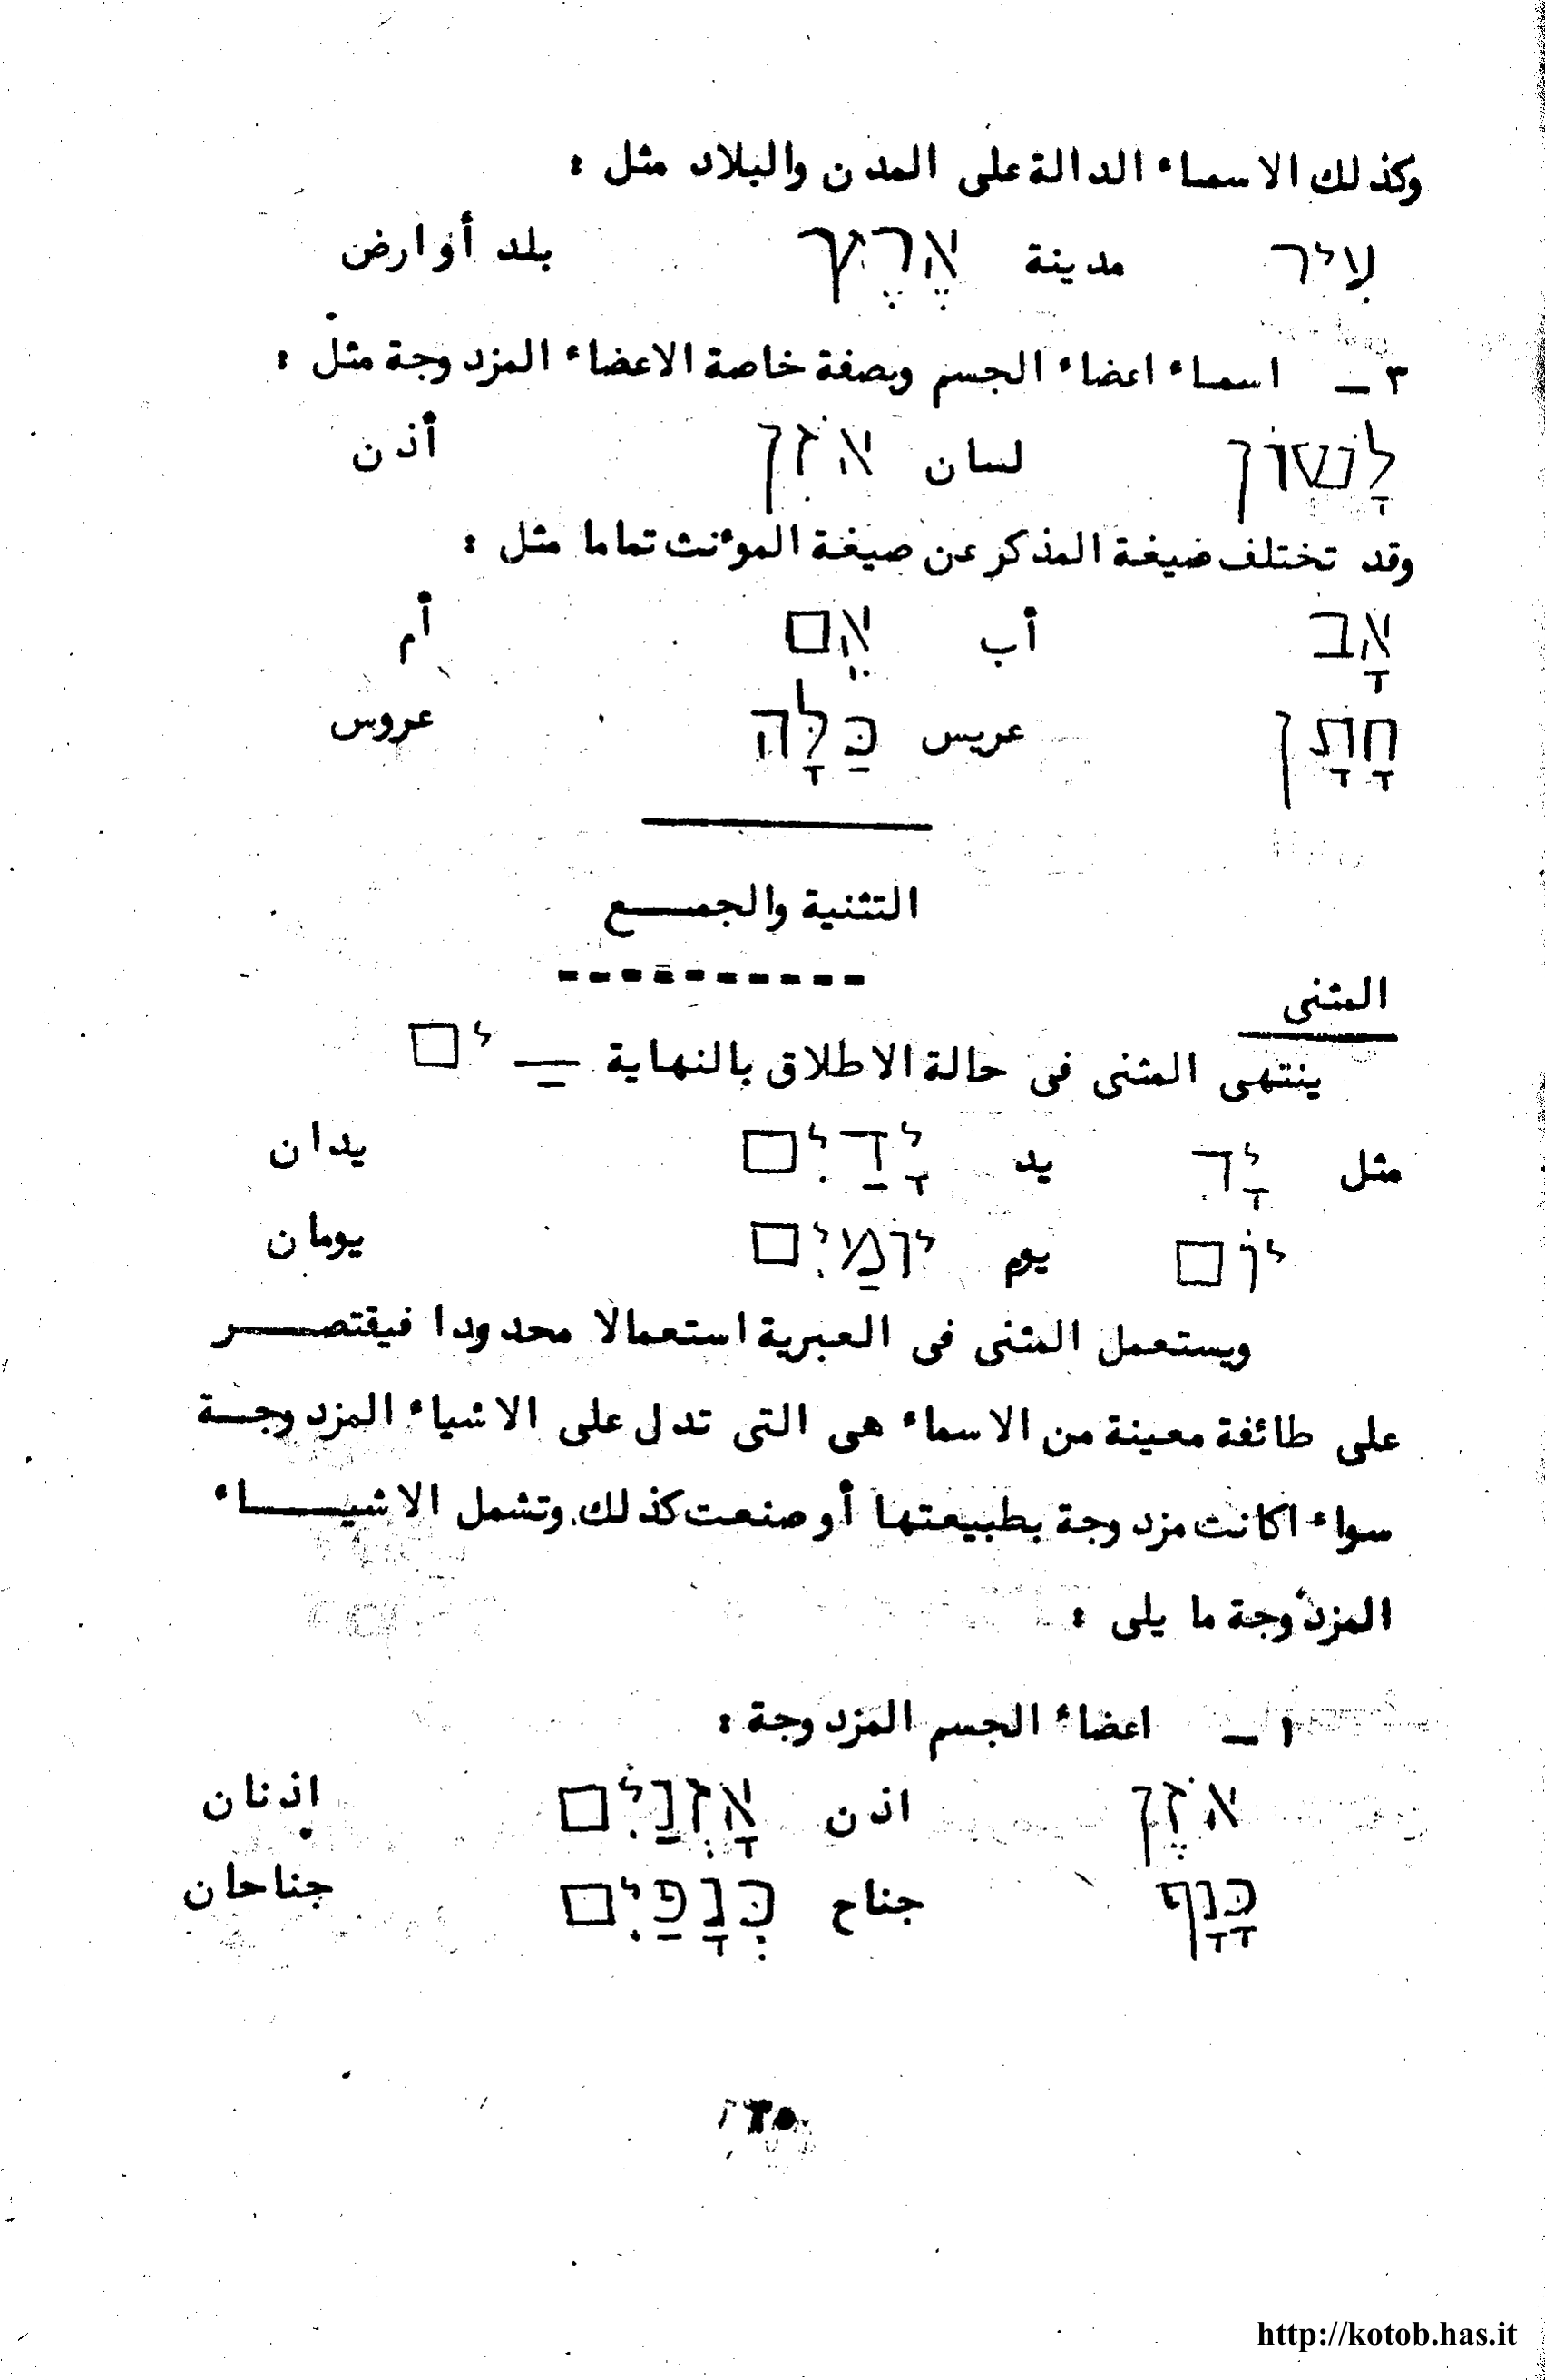 وكذلك الاسماء الدالة على المدن والبلاد مثل :
עִיר مدينة אֶרֶץ بلد أو ارض
٣ ـ اسماء اعضاء الجسم وبصفة خاصة الاعضاء المزدوجة مثل :
לָשׁוֹן لسان אֹזן أذن
وقد تختلف ضيغة المذكر عن صيغة المؤنث تماما مثل :
אָב أب אֵם أم
חָתָן عريس כַּלָּה عروس
التثنية والجمـــع
المثنى
ينتهى المثنى فى حالة الاطلاق بالنهاية ـַ ים
مثل יָד يد יָדַיִם يدان
יוֹם يوم יוֹמַיִם يومان
ويستعمل المثنى فى العبرية استعمالا محدودا فيقتصـــر
على طائفة معينة من الاسماء هى التى تدل على الاشياء المزدوجــة
سواء اكانت مزدوجة بطبيعتها أو صنعت كذلك. وتشمل الاشيـــاء
المزدوجة ما يلى :
١ ـ اعضاء الجسم المزدوجة :
אֹזֶן اذن אָזְנַיִם اذنان
כָּנָף جناح כְּנָפַיִם جناحان
http://kotob.has.it